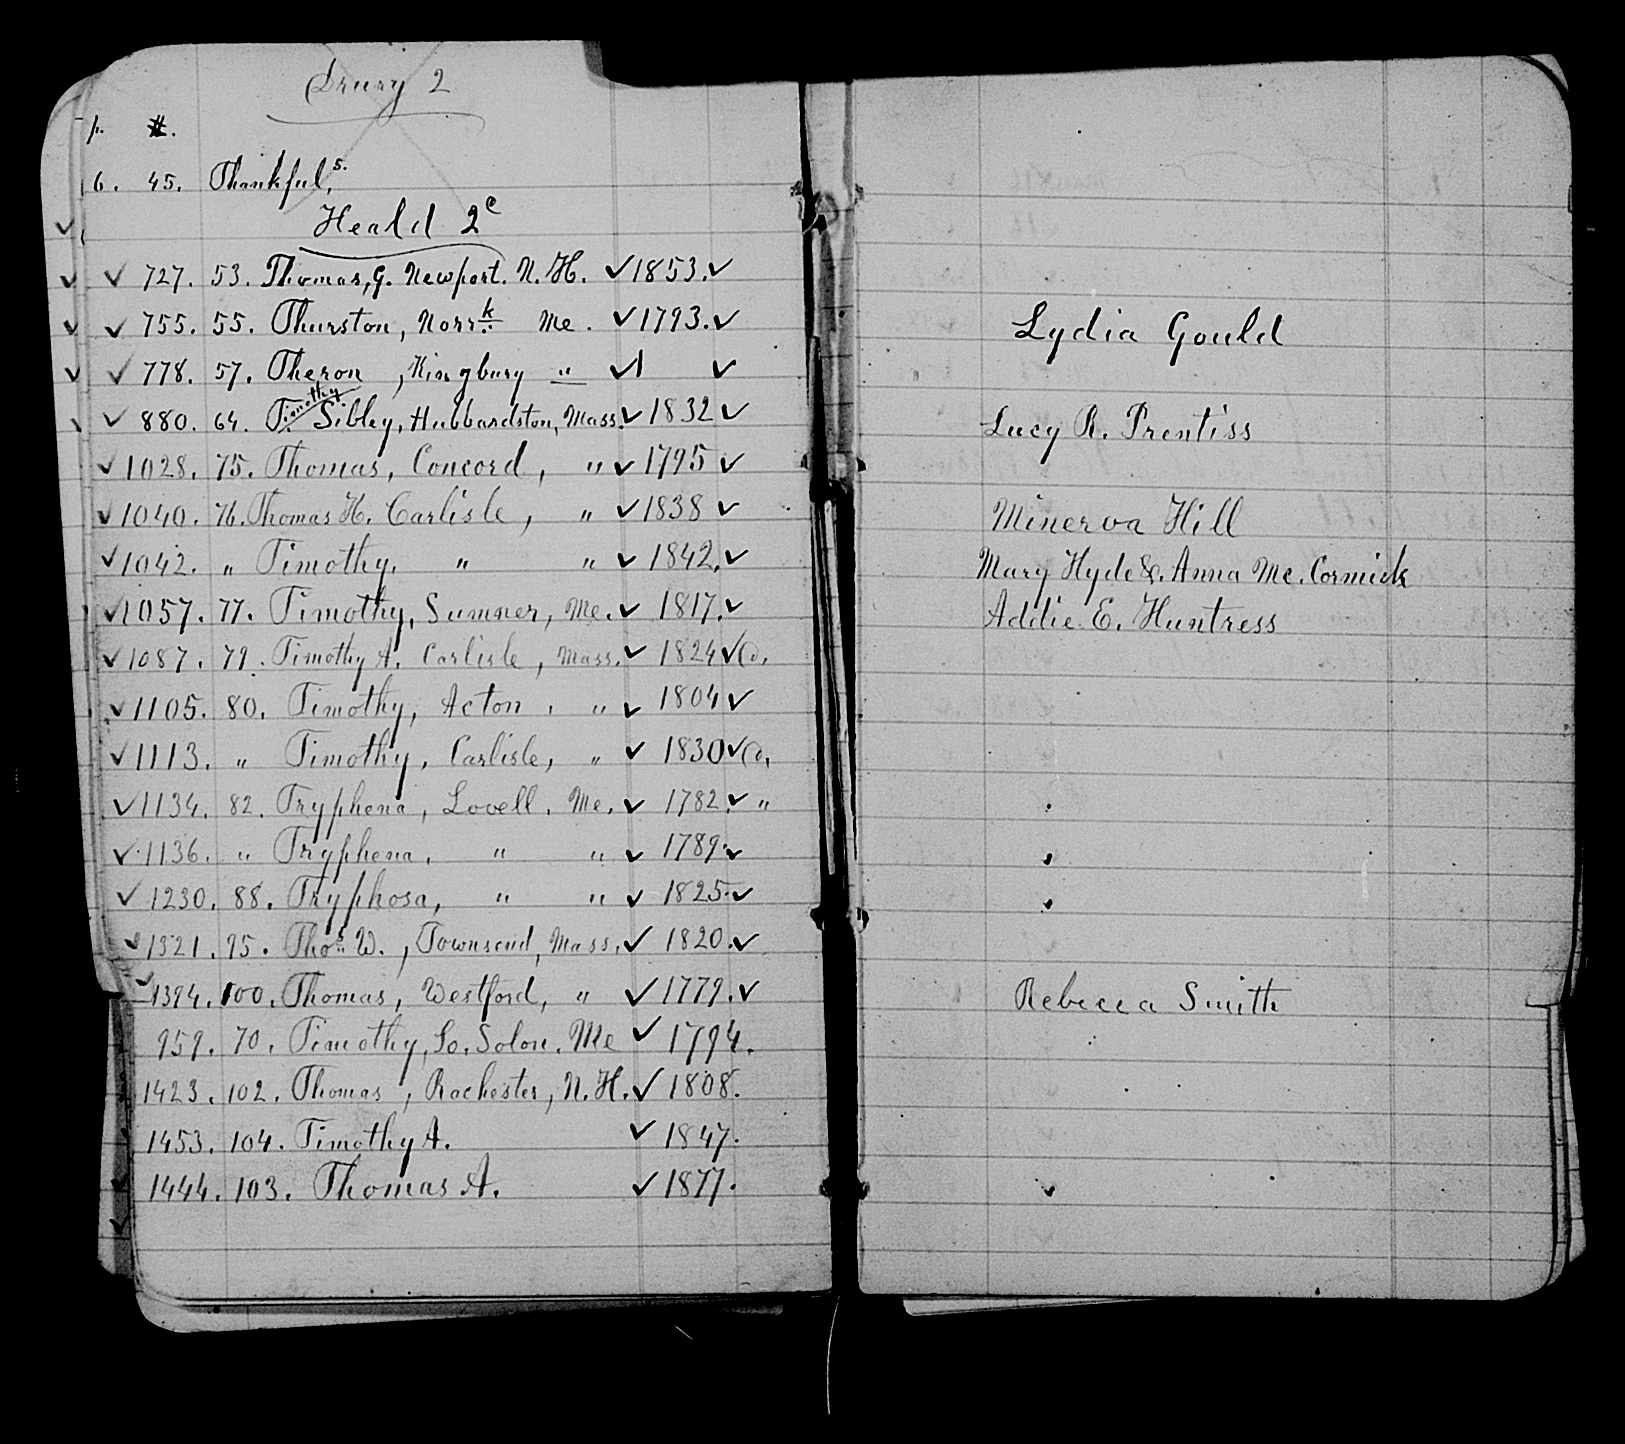 Drury 2
p. #.
6. 45. Thankful, 5.
Heald 2e
✓ 727. 53. Thomas, G. Newport. N. H. ✓ 1853. ✓
✓ 755. 55. Thurston, Norrk. Me. ✓ 1793. ✓ Lydia Gould
✓ 778. 57. Theron, Kingbury " ✓ 1 ✓
Timothy
✓ 880. 64. T. Sibley, Hubbardston, Mass. ✓ 1832 ✓ Lucy R. Prentiss
✓ 1028. 75. Thomas, Concord, " ✓ 1795 ✓
✓ 1040. 76. Thomas H. Carlisle, " ✓ 1838 ✓ Minerva Hill
✓ 1042. " Timothy, " " ✓ 1842. ✓ Mary Hyde &. Anna Mc. Cormick
✓ 1057. 77. Timothy, Sumner, Me. ✓ 1817. ✓ Addie E. Huntress
✓ 1087. 79. Timothy A. Carlisle, Mass. ✓ 1824 ✓
✓ 1105. 80. Timothy, Acton, " ✓ 1804 ✓
✓ 1113. " Timothy, Carlisle, " ✓ 1830 ✓
✓ 1134. 82. Tryphena, Lovell, Me. ✓ 1782. ✓ "
✓ 1136. " Tryphena, " " ✓ 1789. ✓
✓ 1230. 88. Tryphosa, " " ✓ 1825. ✓
✓ 1321. 95. Thos. W., Townsend, Mass. ✓ 1820. ✓
✓ 1394. 100. Thomas, Westford, " ✓ 1779. ✓ Rebecca Smith
959. 70. Timothy, So. Solon. Me ✓ 1794.
1423. 102. Thomas, Rochester, N. H. ✓ 1808.
1453. 104. Timothy A. ✓ 1847.
1444. 103. Thomas A. ✓ 1877.